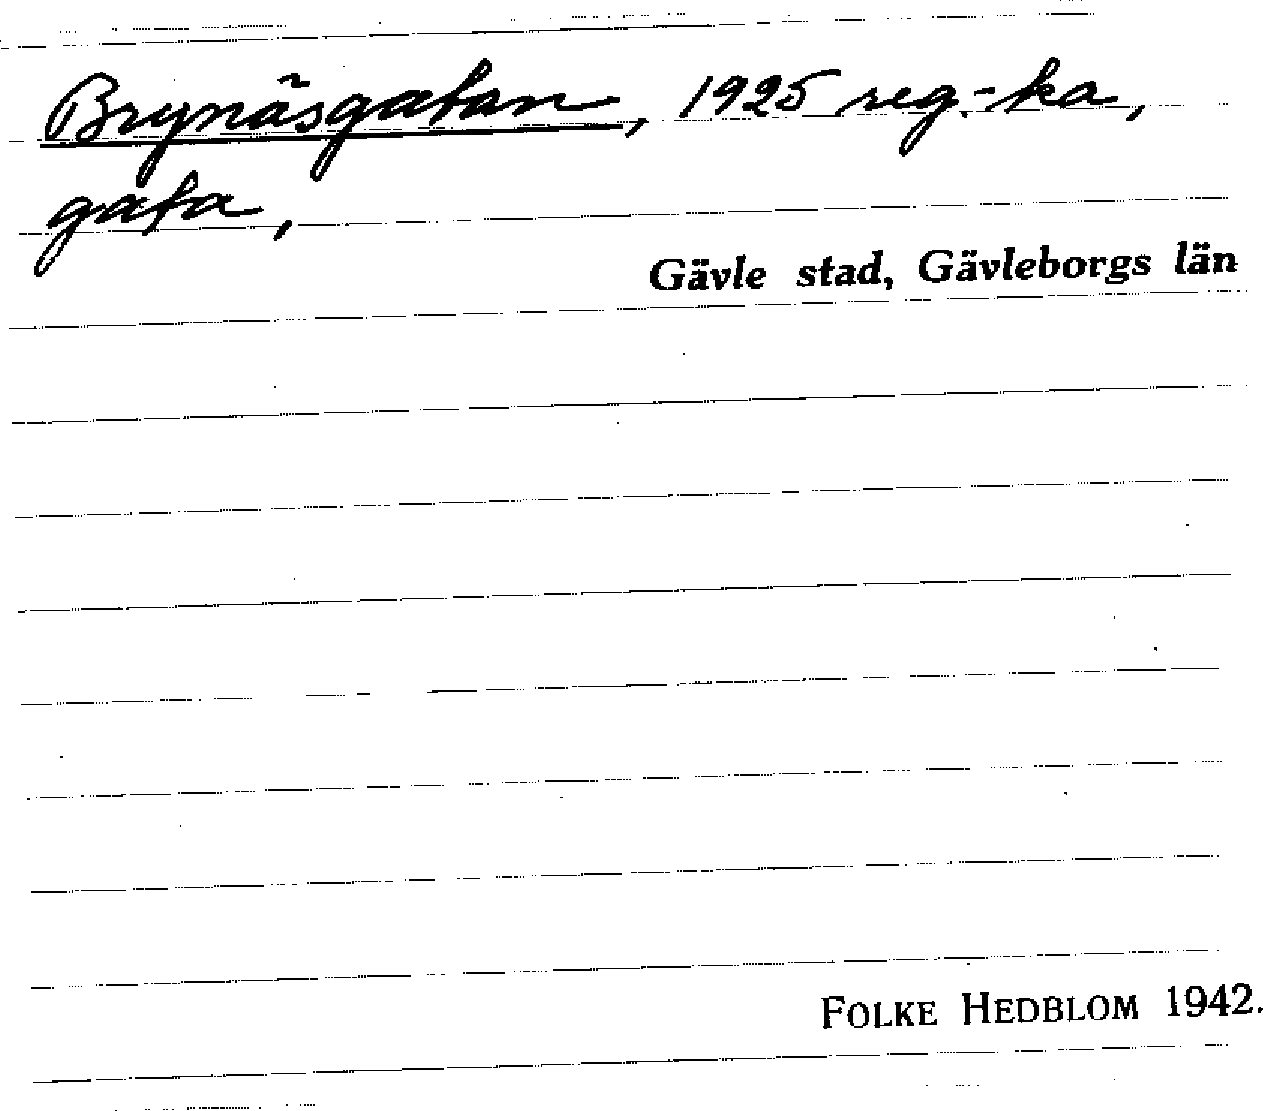 Brynäsgatan, 1925 reg.-ka,
gata,
Gävle stad, Gävleborgs län
FOLKE HEDBLOM 1942.